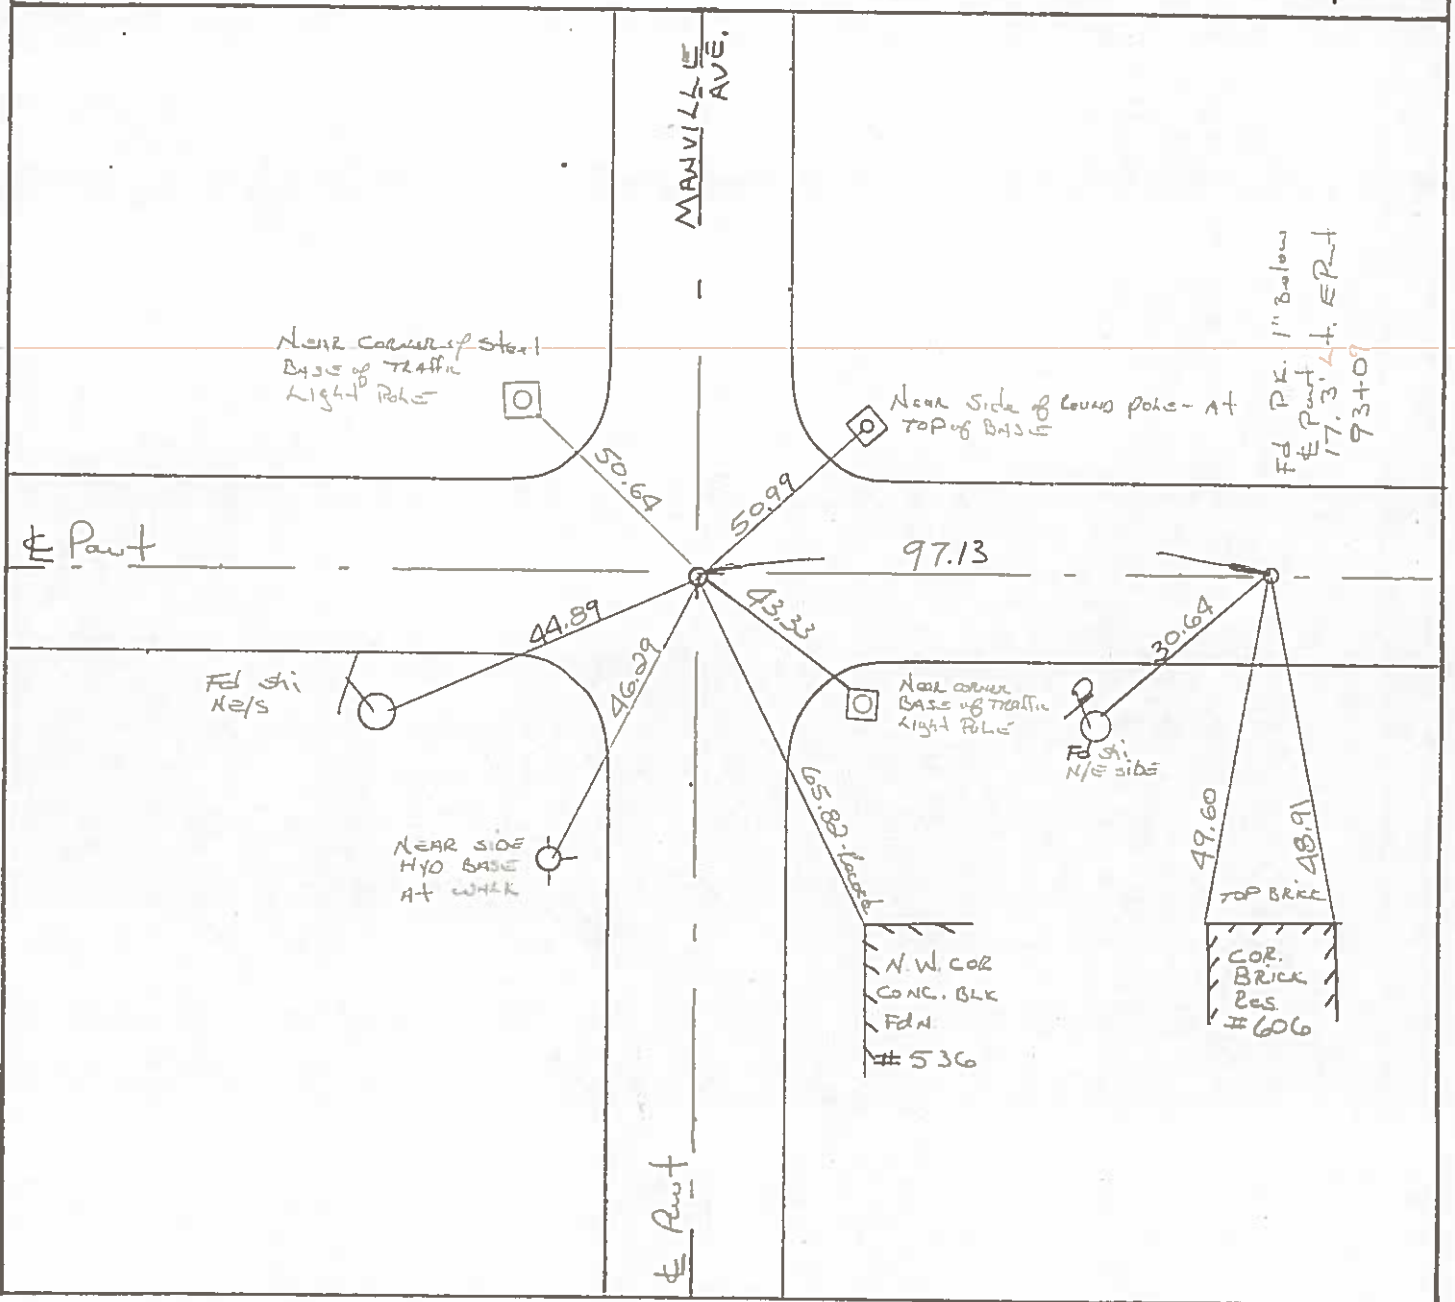 MANVILLE
AVE.
Near Corner of Steel
BASE of TRAffic
Light Pole
Near Side of Round pole - At
TOP of BASE
Fd P.K. 1" Below
℄ Pvmt
17.3' Lt. EPvmt
93+09
50.64
50.99
℄ Pavt
97.13
44.89
43.33
46.29
30.64
Fd shi
NE/S
Near corner
BASE of Traffic
Light Pole
Fd shi
N/E side
65.82-Record
49.60
48.91
NEAR SIDE
HYD BASE
At WALK
TOP BRICK
N.W. COR
CONC. BLK
Fdn
# 536
COR.
BRICK
Res.
# 606
℄ Pavt